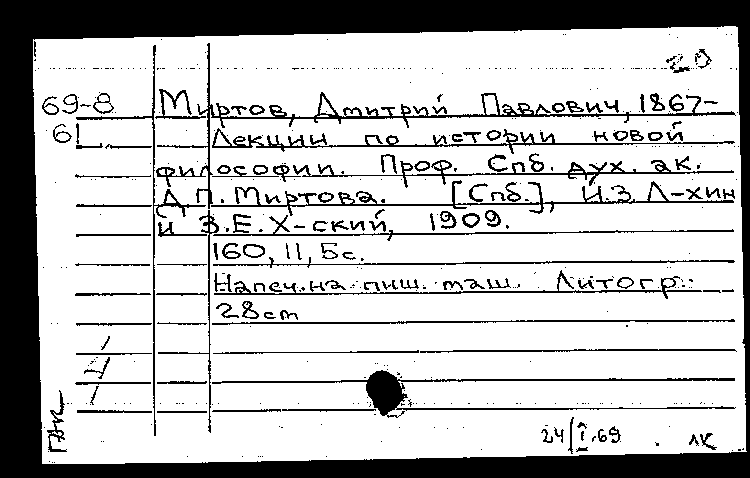 20
69-8 Миртов, Дмитрий Павлович, 1867-
61. Лекции по истории новой
философии. Проф. Спб. дух. ак.
Д.П. Миртова. [Спб.], И.З. Л-хин
и З.Е. Х-ский, 1909.
160, 11, 5 с.
Напеч. на пиш. маш. Литогр.
28 cm
4
24/I.69. ЛК